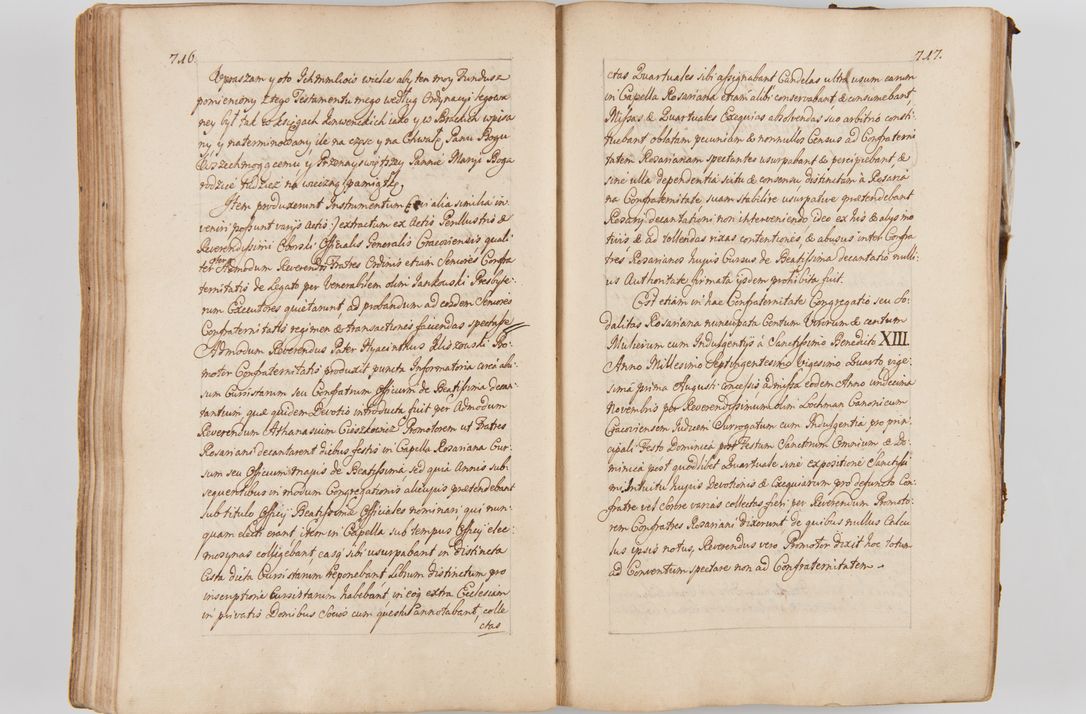 716.
Upraszam y oto Ichmmłiow wielce aby ten moy Fundusz
pomieniony z tego Testamentu mego według Ordynacyi Iegoza
ney był tak w księgach Konwenckich iako y w Brackich wpisa
ny y naterminowany ile na część y na Chwałę Panu Bogu
Wszechmogącemu y Przenayswiętszey Pannie Maryi Boga
rodzicę tudziesz na wieczną pamiątkę
Item produxerunt Instrumentum /: cui alia similia in-
veniri possunt varijs actis :/ extractum ex Actis Perillustris &
Reverendissimi Oborski Officialis Generalis Cracoviensis, quali-
ter Admodum Reverendi Fratres Ordinis etiam Seniores Confra
ternitatis de Legato per Venerabilem olim Jankowski Presbyte-
rum Executores quietarunt, ad probandum ad eosdem Seniores
Confraternitatis regimen & transactiones faciendas spectasse
Admodum Reverendus Pater Hyacinthus Kliszowski Pro-
motor Confraternitatis produxit puncta Informatoria circa abu-
sum Cursistarum seu Confratrum Officium de Beatissima decan-
tantium, quæ quidem Devotio introducta fuit per Admodum
Reverendum Athanasium Cieszkowicz Promotorem ut Fratres
Rosariani decantarent diebus festis in Capella Rosariana Cur-
sum seu Officium majus de Beatissima, sed quia Annis sub-
sequentibus in modum Congregationis alicujus prætendebant
sub titulo Officij Beatissimæ Officiales nominari qui nun-
quam electi erant, item in Capella sub tempus Officij elee-
mosynas colligebant, easq́ sibi usurpabant in distincta
Cista dicta Cursistarum reponebant, Librum distinctum pro
inscriptione Cursistarum habebant in eoq́ extra Ecclesiam
in privatis Domibus Socios cum quæstu annotabant, colle
ctas
717.
ctas Quartuales sibi assignabant Candelas ultra usum earum
in Capella Rosariana etiam alibi conservabant & consumebant,
Missas & Quartuales Exequias absolvendas suo arbitrio consti-
tuebant oblatam pecuniam & nonnullos Census ad Confraterni
tatem Rosarianam spectantes usurpabant & percipiebant, &
sine ulla dependentia scitu & consensu distinctam à Rosaria
na Confraternitate suam stabilire usurpative prætendebant
Rosarij decantationi non interveniendo ideo ex his & alijs mo
tivis & ad tollendas rixas contentiones, & abusus inter Confra
tres Rosarianos hujus Cursus de Beatissima decantatio nulli-
us Authoritate firmata ijsdem prohibita fuit.
Est etiam in hac Confraternitate Congregatio seu So-
dalitas Rosariana nuncupata Centum Virorum & centum
Mulierum cum Indulgentijs à Sanctissimo Benedicto XIII
Anno Millesimo Septingentesimo Vigesimo Quarto vige-
simâ primâ Augusti concessis admissa eodem Anno undecima
Novembris per Reverendissimum olim Lochman Canonicum
Cracoviensem Judicem Surrogatum cum Indulgentia pro prin-
cipali Festo Dominicâ post Festum Sanctorum Omnium & Do-
minicâ post quodlibet Quartuale sine expositione Sanctissi
mi. Intuitu hujus Devotionis & Exequiarum pro defuncto Con-
fratre vel Sorore varias collectas fieri per Reverendum Promoto-
rem Confratres Rosariani dixerunt, de quibus nullus Calcu-
lus ipsis notus, Reverendus vero Promotor dixit hoc totum
ad Conventum spectare non ad Confraternitatem.